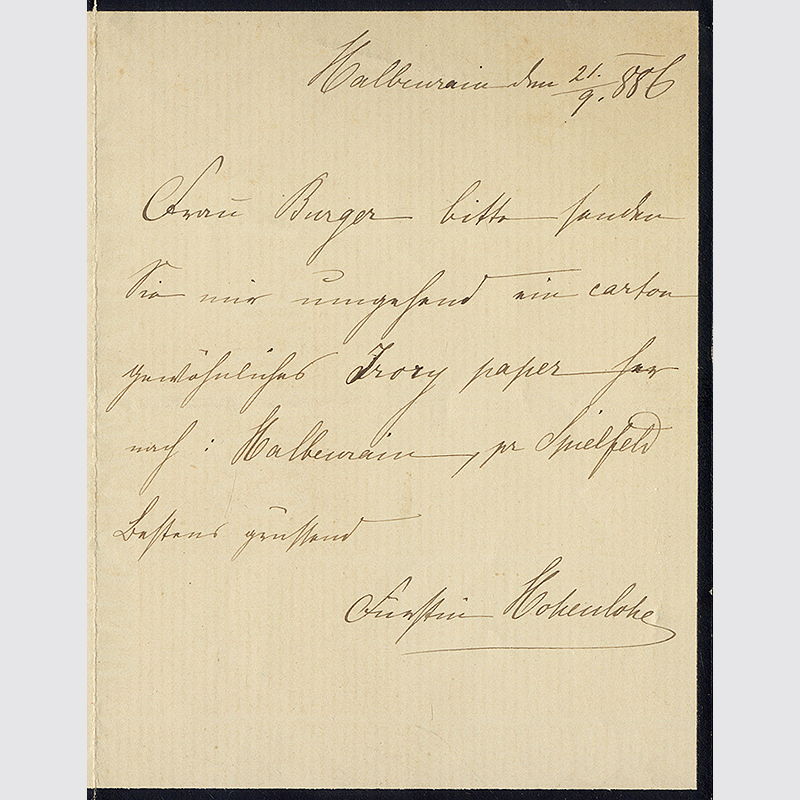 Halbenrain den 21./9. 886
Frau Burger bitte senden
Sie mir umgehend ein carton
gewöhnliches Ivory paper her
nach : Halbenrain, pr Spielfeld
Bestens grüssend
Fürstin Hohenlohe